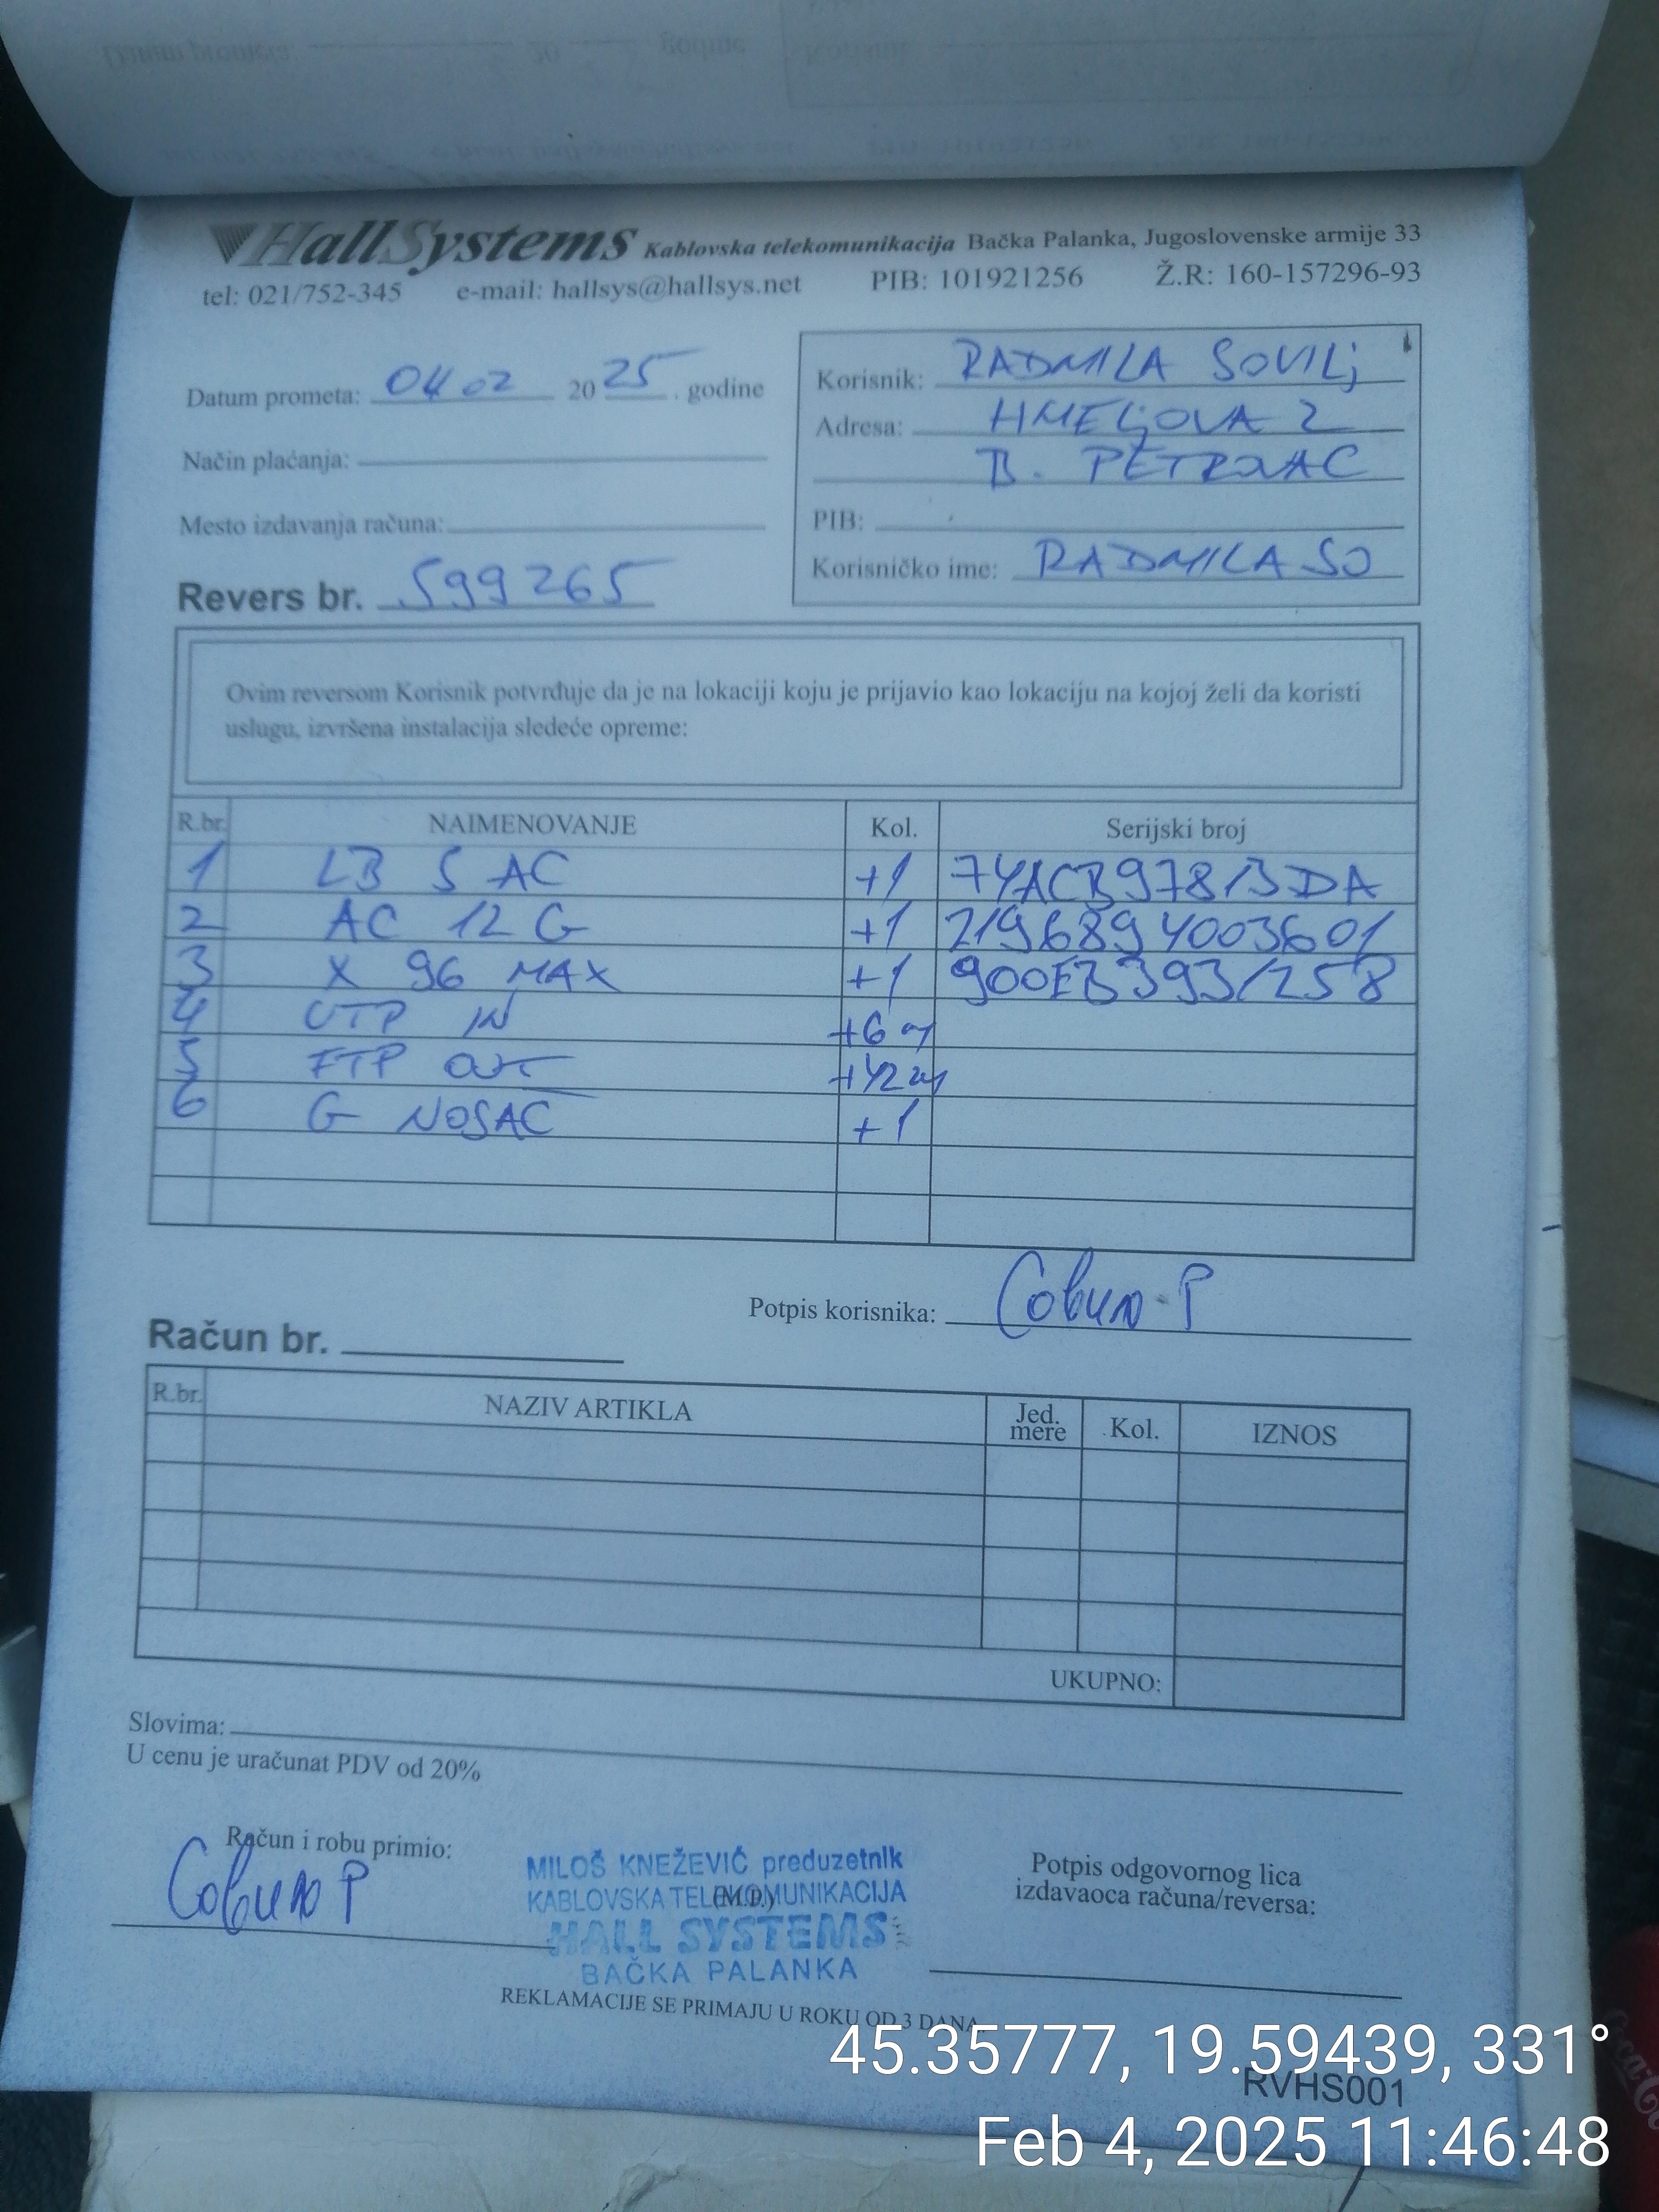 HallSystems Kablovska telekomunikacija Bačka Palanka, Jugoslovenske armije 33
tel: 021/752-345 e-mail: hallsys@hallsys.net PIB: 101921256 Ž.R: 160-157296-93
Datum prometa: 04 02 2025. godine
Način plaćanja:
Mesto izdavanja računa:
Revers br. 599265
Korisnik: RADMILA SOVILj
Adresa: HMELjOVA 2
B. PETROVAC
PIB:
Korisničko ime: RADMILASO
Ovim reversom Korisnik potvrđuje da je na lokaciji koju je prijavio kao lokaciju na kojoj želi da koristi
uslugu, izvršena instalacija sledeće opreme:
R.br. NAIMENOVANJE Kol. Serijski broj
1 LB 5 AC +1 74ACB97813DA
2 AC 12 G +1 2196894003601
3 X 96 MAX +1 900EB3931258
4 UTP IN +6 m
5 FTP OUT +42 m
6 G NOSAČ +1
Potpis korisnika: Совиљ Р
Račun br.
R.br. NAZIV ARTIKLA Jed. mere Kol. IZNOS
UKUPNO:
Slovima:
U cenu je uračunat PDV od 20%
Račun i robu primio:
Совиљ Р
MILOŠ KNEŽEVIĆ preduzetnik
KABLOVSKA TELEKOMUNIKACIJA
(M.P.)
HALL SYSTEMS
BAČKA PALANKA
Potpis odgovornog lica
izdavaoca računa/reversa:
REKLAMACIJE SE PRIMAJU U ROKU OD 3 DANA.
RVHS001
45.35777, 19.59439, 331°
Feb 4, 2025 11:46:48